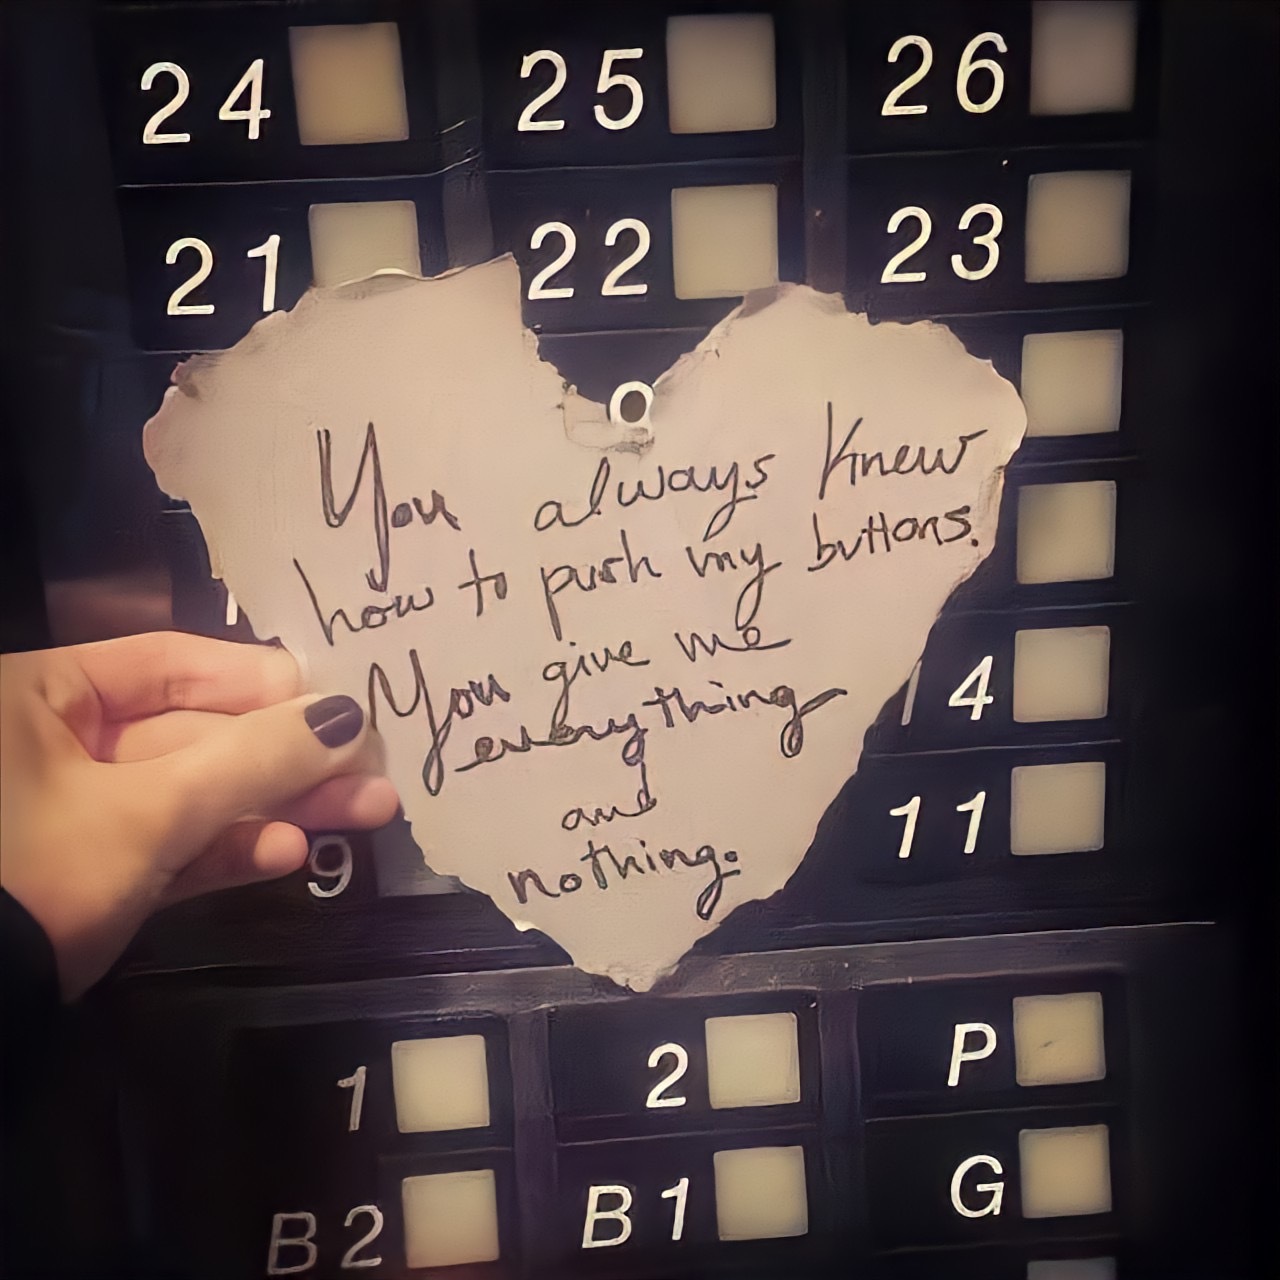 24 25 26
21 22 23
You always Knew
how to push my buttons.
You give me
everything
and
nothing.
4
9 11
1 2 P
B2 B1 G